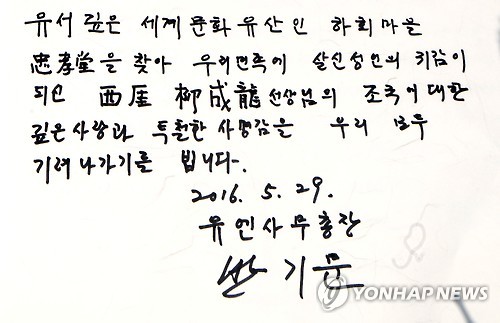 유서 깊은 세계문화유산인 하회마을
忠孝堂을 찾아 우리민족에 살신성인의 귀감이
되신 西厓 柳成龍 선생님의 조국에 대한
깊은 사랑과 투철한 사명감을 우리 모두
기려나가기를 빕니다.
2016. 5. 29.
유엔사무총장
반기문
YONHAPNEWS